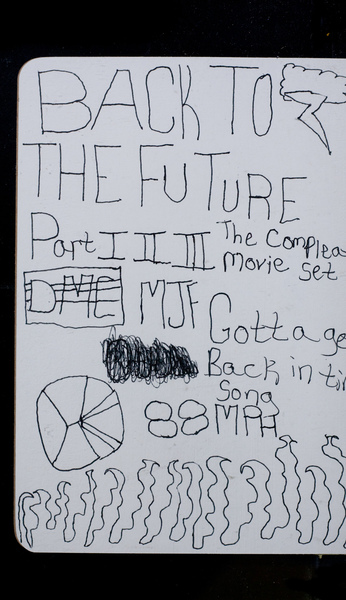 BACK TO
THE FUTURE
Part I II III The Complea
Movie set
DMC MJF Gotta ge
Back in tim
Song
88 MPH